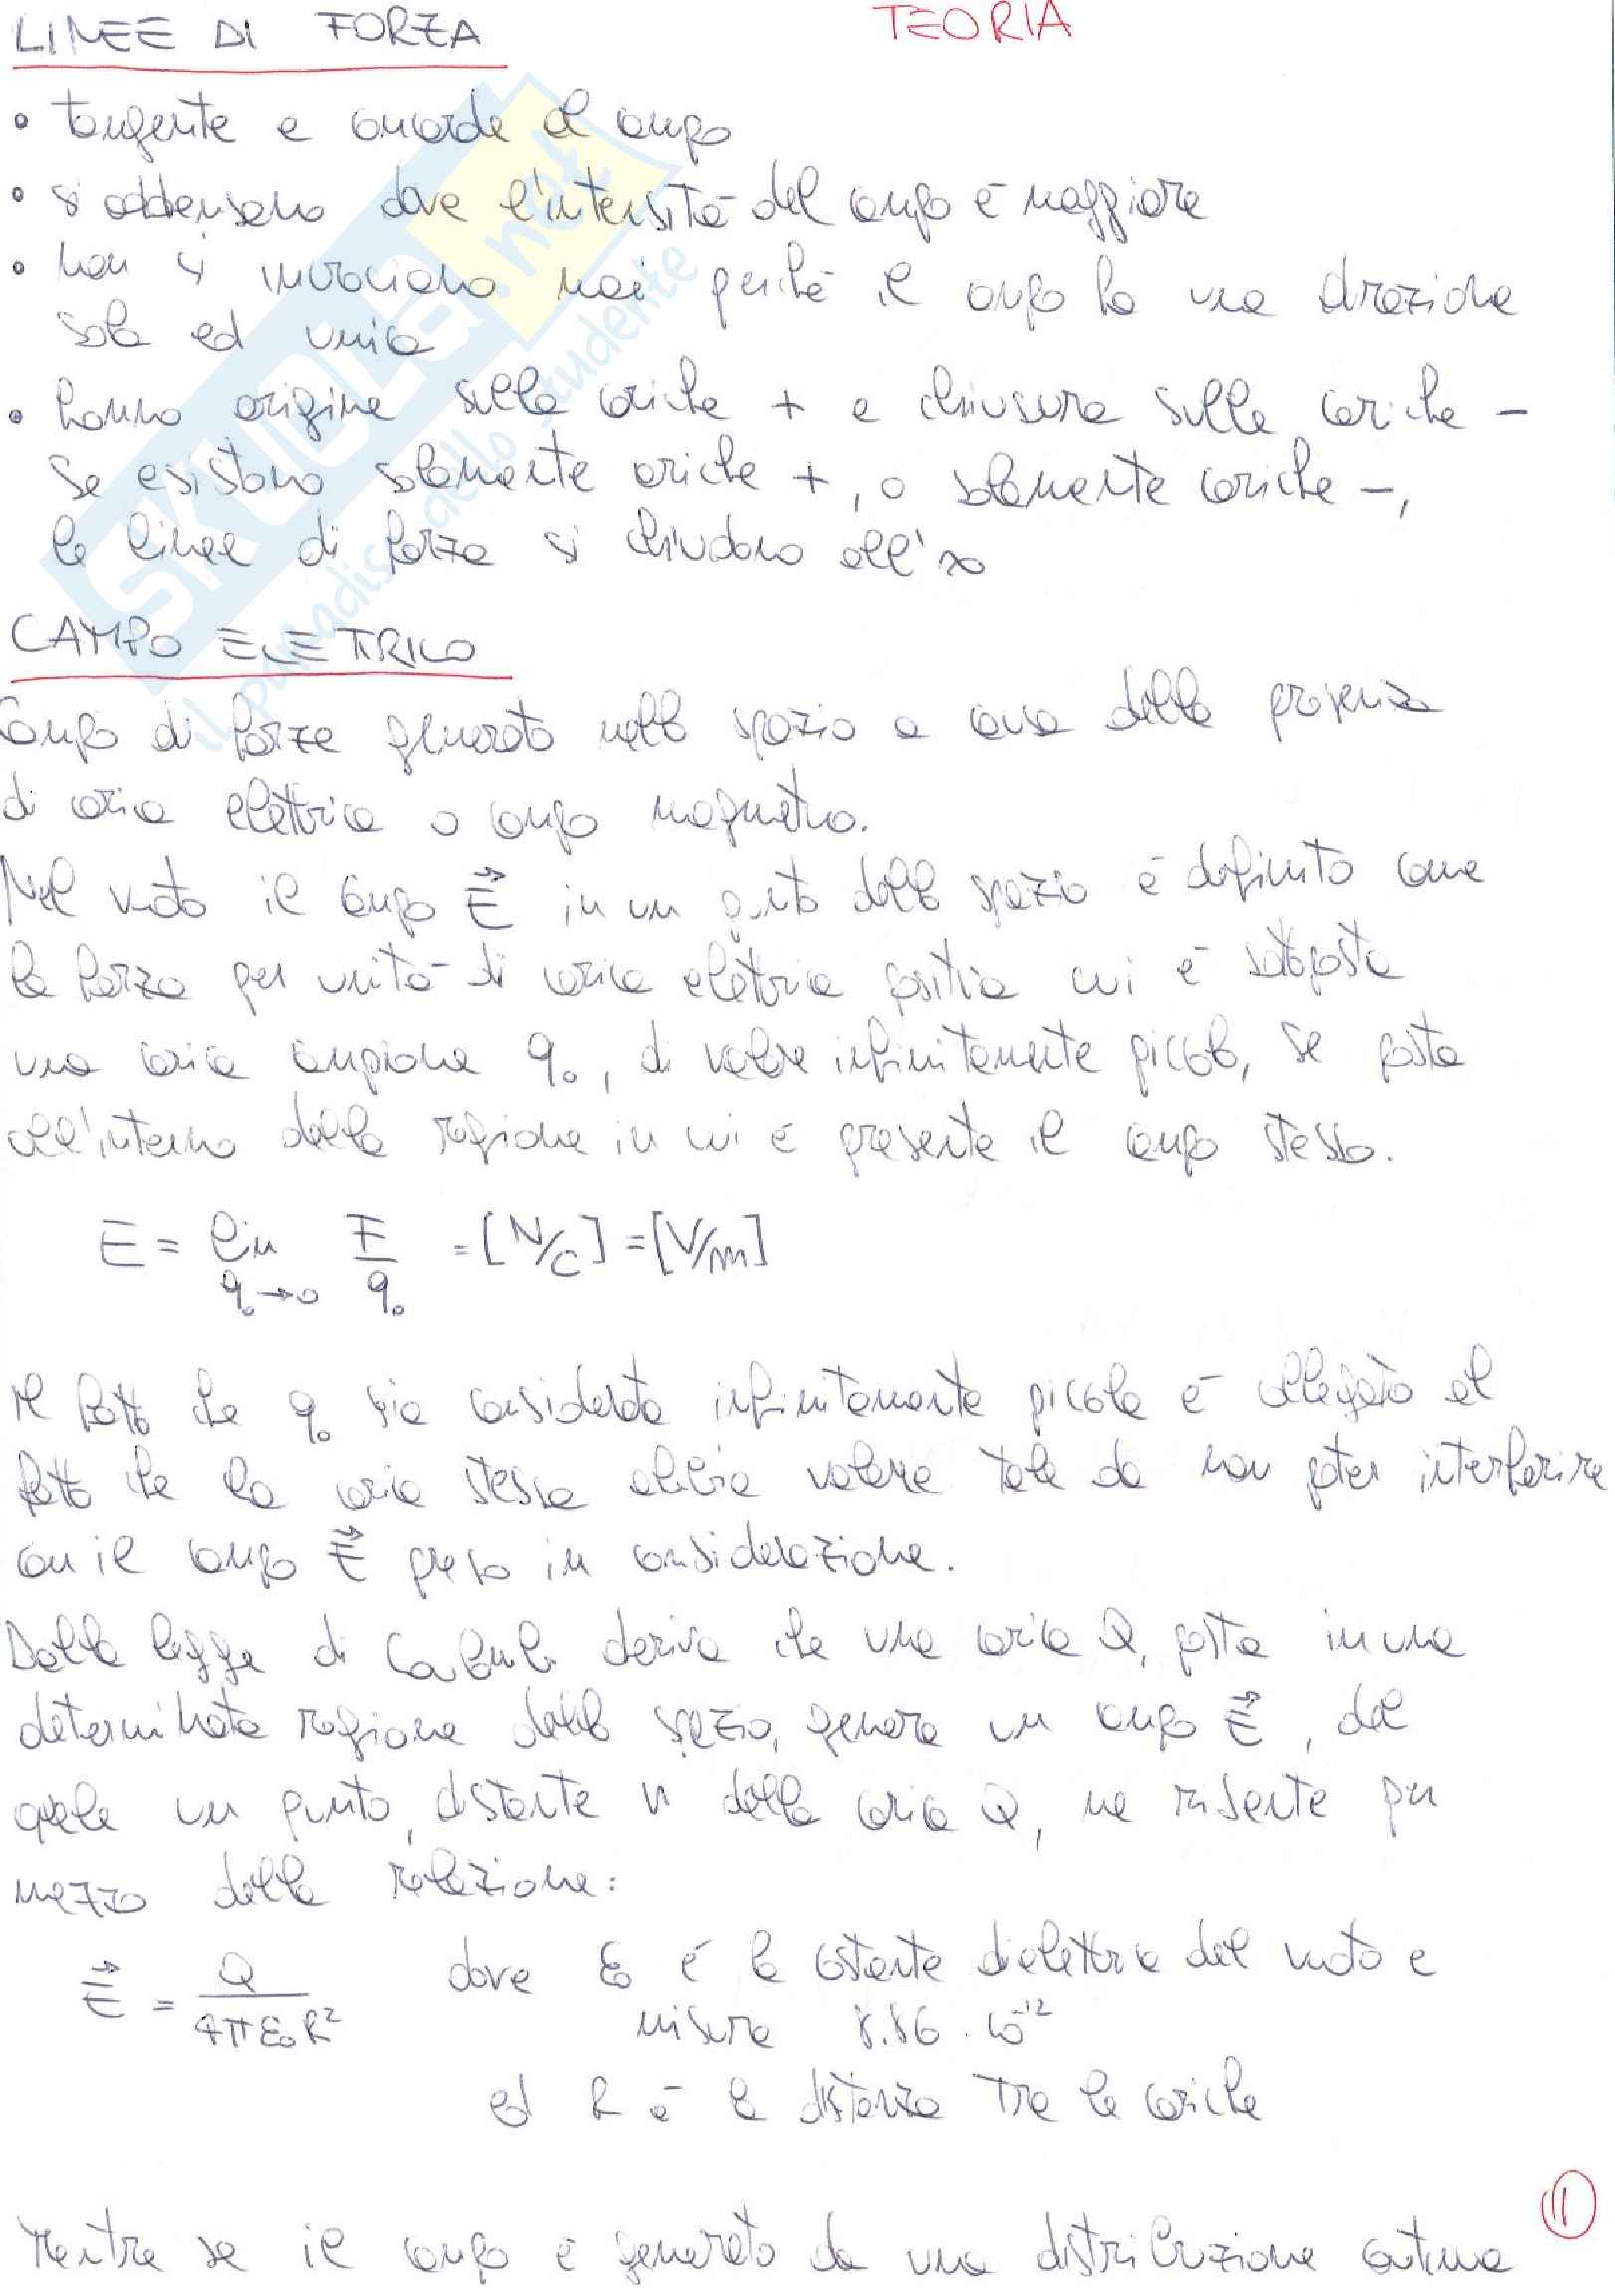 LINEE DI FORZA
TEORIA
• tangente e concorde al campo
• si addensano dove l'intensità del campo è maggiore
• non si incrociano mai perchè il campo ha una direzione
sola ed unica
• hanno origine sulle cariche + e chiusura sulle cariche −
Se esistono solamente cariche +, o solamente cariche −,
le linee di forza si chiudono all'∞
CAMPO ELETTRICO
Campo di forze generato nello spazio a causa della presenza
di carica elettrica o campo magnetico.
Nel vuoto il campo E⃗ in un punto dello spazio è definito come
la forza per unità di carica elettrica positiva cui è sottoposta
una carica campione q₀, di valore infinitamente piccolo, se posta
all'interno della regione in cui è presente il campo stesso.
E = lim F/q₀ = [N/C] = [V/m]
q₀→0
Il fatto che q₀ sia considerata infinitamente piccola è collegato al
fatto che la carica stessa abbia valore tale da non poter interferire
con il campo E⃗ preso in considerazione.
Dalla legge di Coulomb deriva che una carica Q, posta in una
determinata regione dello spazio, genera un campo E⃗, del
quale un punto, distante r dalla carica Q, ne risente per
mezzo della relazione:
E⃗ = Q/4πε₀R² dove ε₀ è la costante dielettrica del vuoto e
misura 8.86 · 10⁻¹²
ed R è la distanza tra le cariche
11
Mentre se il campo è generato da una distribuzione continua
SKUOLA.net
il paradiso dello studente